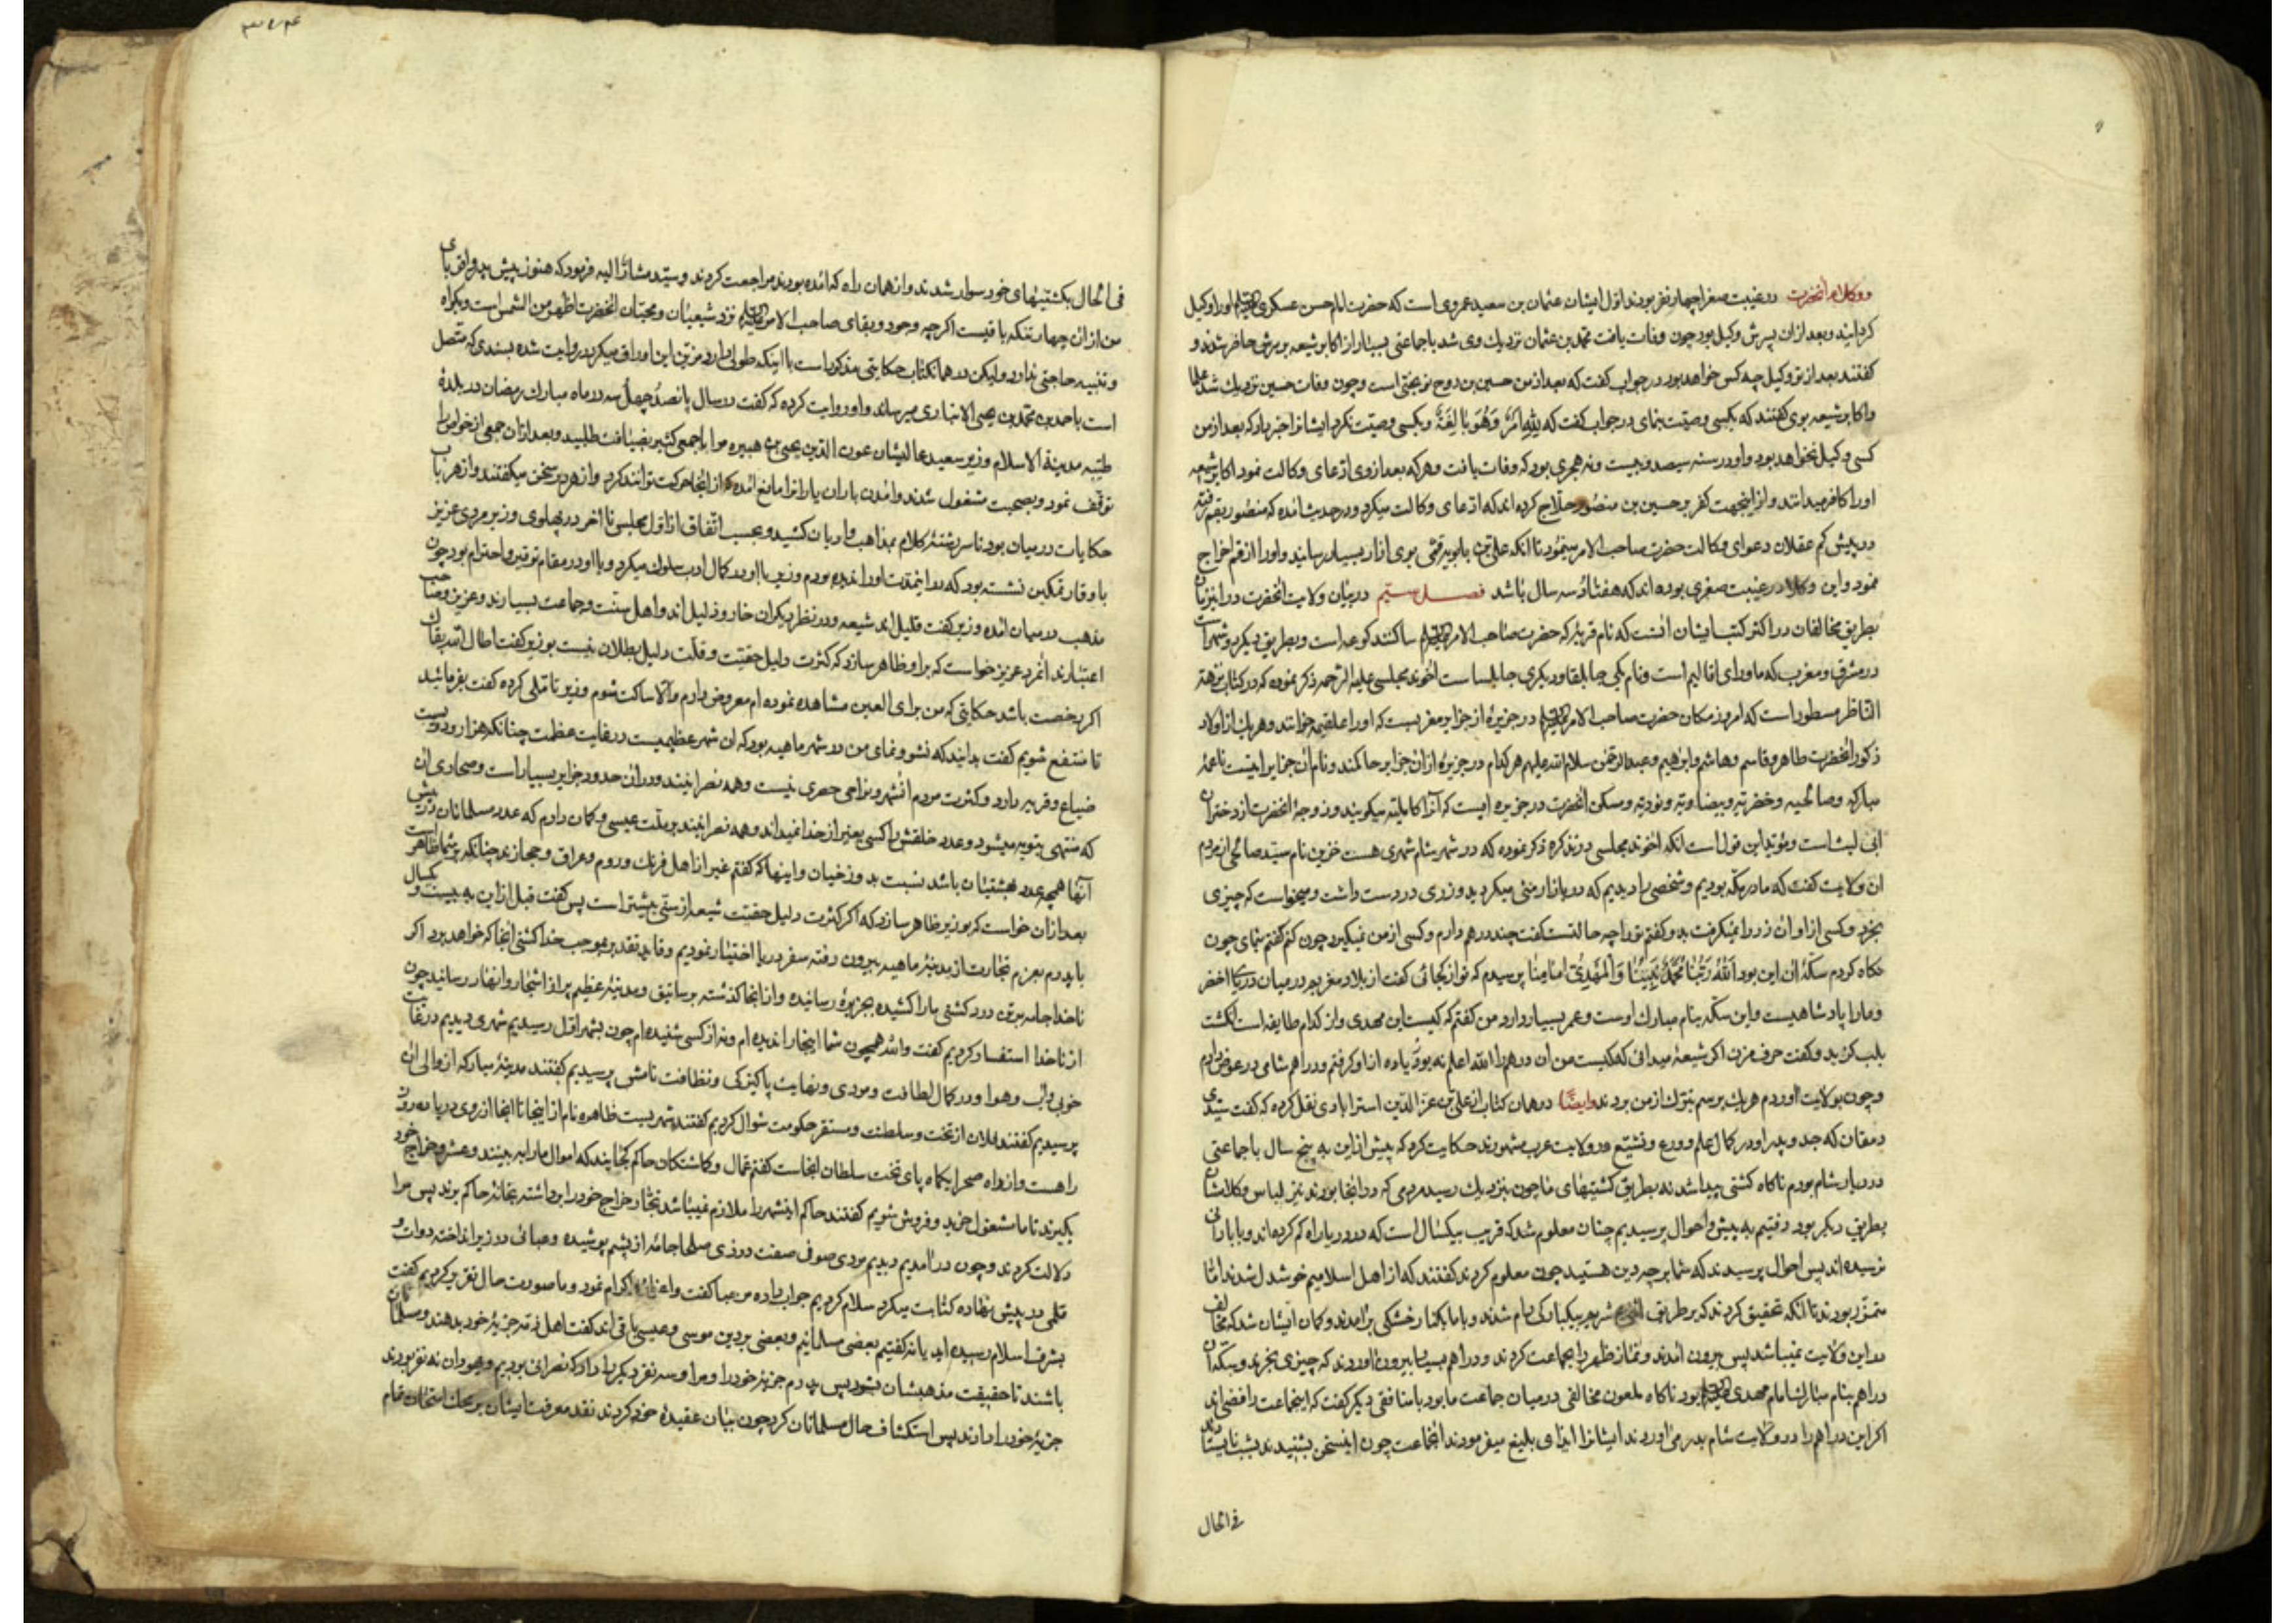 ووکلاء آنحضرت در غیبت صغرا چهار نفر بودند اول ایشان عثمان بن سعید عمروی است که حضرت امام حسن عسکری او را وکیل
کردانید و بعد ازان پسرش وکیل بود چون وفات یافت محمد بن عثمان نزدیک وی شد با جماعتی بسیار از اکابر شیعه بر سرش حاضر شدند و
گفتند بعد از تو وکیل چه کس خواهد بود در جواب گفت که بعد از من حسین بن روح نوبختی است و چون وفات حسین نزدیک شد علما
و اکابر شیعه بوی گفتند که بکسی وصیت بنمای در جواب گفت که لله امر وهو بالغه و بکسی وصیت نکرد ایشانرا خبر داد که بعد از من
کسی وکیل نخواهد بود و او در سنه سیصد و بیست و نه هجری بود که وفات یافت و هر که بعد از وی ادعای وکالت نمود اکابر شیعه
او را کافر میدانند و از اینجهت کفر بر حسین بن منصور حلاج کرده اند که ادعای وکالت میکرد و در حدیث آمده که منصور بقم رفته
در پیش کم عقلان دعوای وکالت حضرت صاحب الامر مینمود تا آنکه علی بن بابویه قمی بوی آزار بسیار رسانید و او را از قم اخراج
نمود و این وکلا در غیبت صغری بوده اند که هفتاد و سه سال باشد فصل سیم در بیان ولایت آنحضرت در این زمان
بطریق مخالفان در اکثر کتب ایشان آنست که نام قریه که حضرت صاحب الامر ساکنند کرعه است و بطریق دیگر دو شهر است
در مشرق و مغرب که ماورای اقالیم است و نام یکی جابلقا و دیگری جابلسا ست آخوند مجلسی علیه الرحمه ذکر نموده که در کتاب نزهة
الناظر مسطور است که امروز مکان حضرت صاحب الامر در جزیره از جزایر مغربست که او را علقمیه خوانند و هر یک از اولاد
ذکور آنحضرت طاهر و قاسم و هاشم و ابراهیم و عبدالرحمن سلام الله علیهم هر کدام در جزیره ازان جزایر حاکمند و نام آن جزایر اینست ناعمه
مبارکه و صالحیه و خضریه و بیضاویه و نوریه و مسکن آنحضرت در جزیره ایست که آنرا کاملیه میکویند و زوجه آنحضرت از دختران
ابی لیث است و مؤید این قول است آنکه آخوند مجلسی در تذکره ذکر نموده که در شهر شام شهری هست خزین نام سید صالحی از مردم
آن ولایت گفت که ما در مکه بودیم و شخصی را دیدیم که در بازار منی میکردید و زری در دست داشت و میخواست که چیزی
بخرد و کسی از او آن زر را نمیکرفت بدو گفتم ترا چه حالتست گفت چند درهم دارم و کسی از من نمیکیرد چون کنم گفتم بنمای چون
نکاه کردم سکه آن این بود الله ربنا محمد نبینا والمهدی امامنا پرسیدم که تو از کجائی گفت از بلاد مغرب در میان دریای اخضر
و ما را پادشاهیست و این سکه بنام مبارک اوست و عمر بسیار دارد من گفتم که کیست این مهدی و از کدام طایفه است انکشت
بلب کزید و گفت حرف مزن اکر شیعه میدانی که کیست من آن درهم را الله اعلم نه بود یا ده از او گرفتم و دراهم شامی در عوض دادم
و چون بولایت آوردم هر یک برسم تبرک از من بردند وایضا در همان کتاب از علی بن عز الدین استرابادی نقل کرده که گفت سیدی
دمقان که جد و پدر او در کمال علم و ورع و تشیع در ولایت عرب مشهورند حکایت کرد که پیش از این به پنج سال با جماعتی
در دریا شام بودم ناکاه کشتی پیدا شد نه بطریق کشتیهای ما چون بنزدیک رسید مردمی که در آنجا بودند نیز لباس و کلامشان
بطریق دیگر بود رفتیم به پیش و احوال پرسیدیم چنان معلوم شد که قریب بیکسال است که در دریا راه کم کرده اند و بابادانی
نرسیده اند پس احوال پرسیدند که شما بر چه دین هستید چون معلوم کردند گفتند که از اهل اسلامیم خوشدل شدند اما
متمور بودند تا آنکه تحقیق کردند که بر طریقی شریعه بیکبارکی رام شدند و با ما بکنار خشکی برآمدند و کمان ایشان شد که مخالف
در این ولایت نمیباشد پس بیرون آمدند و نماز ظهر را بجماعت کردند و دراهم بسیار بیرون آوردند که چیزی بخرند و سکه آن
دراهم بنام مبارک امام مهدی بود ناکاه ملعون مخالفی در میان جماعت ما بود با منافقی دیگر گفت که اینجماعت رافضی اند
اکر این دراهم را در ولایت شام بدر می آوردند ایشانرا ایذای بلیغ میفرمودند آنجماعت چون اینسخن بشنیدند
فی الحال
فی الحال بکشتیهای خود سوار شدند و از همان راه که آمده بودند مراجعت کردند و سید مشارالیه فرمود که هنوز پیش پدر
من ازان چهار تنکه باقیست اکرچه وجود و بقای صاحب الامر نزد شیعیان و محبان آنحضرت اظهر من الشمس است و بکواه
و تنبیه حاجتی ندارد ولیکن در همان کتاب حکایتی مذکور است با اینکه طولی دارد مزین این اوراق میکردد روایت شده بسندی که متصل
است باحمد بن محمد بن یحیی الانباری میرساند و او روایت کرده که گفت در سال پانصد چهل سه در ماه مبارک رمضان در بلده
طیبه مدینة الاسلام وزیر سعید عالیشان عون الدین یحیی بن هبیره مرا با جمعی کثیر بضیافت طلبید و بعد ازان جمعی از خواص را
توقف نمود و بصحبت مشغول شدند و آمدن باران یارانرا مانع آمده از آنجا حرکت توانند کرد و از هر در سخن میکفتند و از هر باب
حکایات در میان بود تا سر رشته کلام بمذاهب و ادیان کشید و بحسب اتفاق از اول مجلس تا آخر در پهلوی وزیر مردی عزیز
با وقار تمکین نشسته بود که در اینمدت او را ندیده بودم وزیر با او در کمال ادب سلوک میکرد و با او در مقام توقیر و احترام بود چون
مذهب در میان آمده وزیر گفت قلیل اند شیعه و در نظر دیگران خار و ذلیل اند و اهل سنت و جماعت بسیارند و عزیز و صاحب
اعتبارند آنمرد عزیز خواست که بر او ظاهر سازد که کثرت دلیل حقیت و قلت دلیل بطلان نیست بوزیر گفت اطال الله بقاک
اکر رخصت باشد حکایتی که من برای العین مشاهده نموده ام معروض دارم والا ساکت شوم وزیر تاملی کرده گفت بفرمائید
تا منتفع شویم گفت بدانید که نشو و نمای من در شهر ماهیه بود که آن شهر عظیمیست در غایت عظمت چنانکه هزار و دویست
ضیاع و قریه دارد و کثرت مردم آنشهر و نواحی حصری نیست و همه نصرانیند و دران حدود جزایر بسیار است و صحاری آن
که منتهی بنوبه میشود و عدد خلقش را کسی بغیر از خدا نمیداند و همه نصرانیند بر ملت عیسی و کمان دارم که عدد مسلمانان در پیش
آنها همچه عدد بهشتیان باشد نسبت بدوزخیان و اینها که گفتم غیر از اهل فرنک و روم و عراق و حجازند چنانکه بر شما ظاهر است
بعد ازان خواست که بوزیر ظاهر سازد که اکر کثرت دلیل حقیت شیعه از سنی بیشتر است پس گفت قبل از این به بیست و یکسال
با پدرم بعزم تجارت از مدینه ماهیه بیرون رفته سفر دریا اختیار نمودیم و قاید تقدیر بموجب خدا کشتی آنجا که خواهد برد اکر
ناخدا جامه بر تن درد کشتی ما را کشیده بجزیره رسانیده و از آنجا گذشته برساتیق و مدینه عظیم پر از اشجار و انهار رسانید چون
از ناخدا استفسار کردیم گفت والله همچون شما اینجا را ندیده ام و نه از کسی شنیده ام چون بشهر اول رسیدیم شهری دیدیم در غایت
خوبی و آب و هوا و در کمال لطافت و مردی و نهایت پاکیزکی و نظافت نامش پرسیدیم گفتند مدینه مبارکه از والی آن
پرسیدیم گفتند فلان از تخت و سلطنت و مستقر حکومت سوال کردیم گفتند شهریست ظاهره نام از اینجا تا آنجا از روی دریا ده روز
راهست و از راه صحرا یکماه پای تخت سلطان آنجاست گفتم عمال و کماشتکان حاکم کجایند که اموال ما را ببینند و عشر و خراج خود
بکیرند تا ما مشغول خرید و فروش شویم گفتند حاکم اینشهر را ملازم نمیباشد تجار خراج خود را برداشته بخانه حاکم برند پس مرا
دلالت کردند و چون درآمدیم دیدیم مردی صوفی صفت در زی صلحا جامه از پشم پوشیده و عبائی در زیر انداخته دوات و
قلمی در پیش نهاده کتابت میکرد سلام کردیم جواب داده مرحبا گفت و اعزاز اکرام نمود و ما صورت حال تقریر کردیم گفت
بشرف اسلام رسیده اید یا نه گفتیم بعضی مسلمانیم و بعضی بر دین موسی و عیسی باقی اند گفت اهل ذمه جزیه خود بدهند و مسلمانان
باشند تا حقیقت مذهبشان شود پس پدرم جزیه خود را و مرا و سه نفر دیگر را داد که نصرانی بودیم و یهودان نه نفر بودند
جزیه خود را دادند پس استکشاف حال مسلمانان کرد چون بیان عقیده خود کردند نقد معرفت ایشان بر محک امتحان تمام